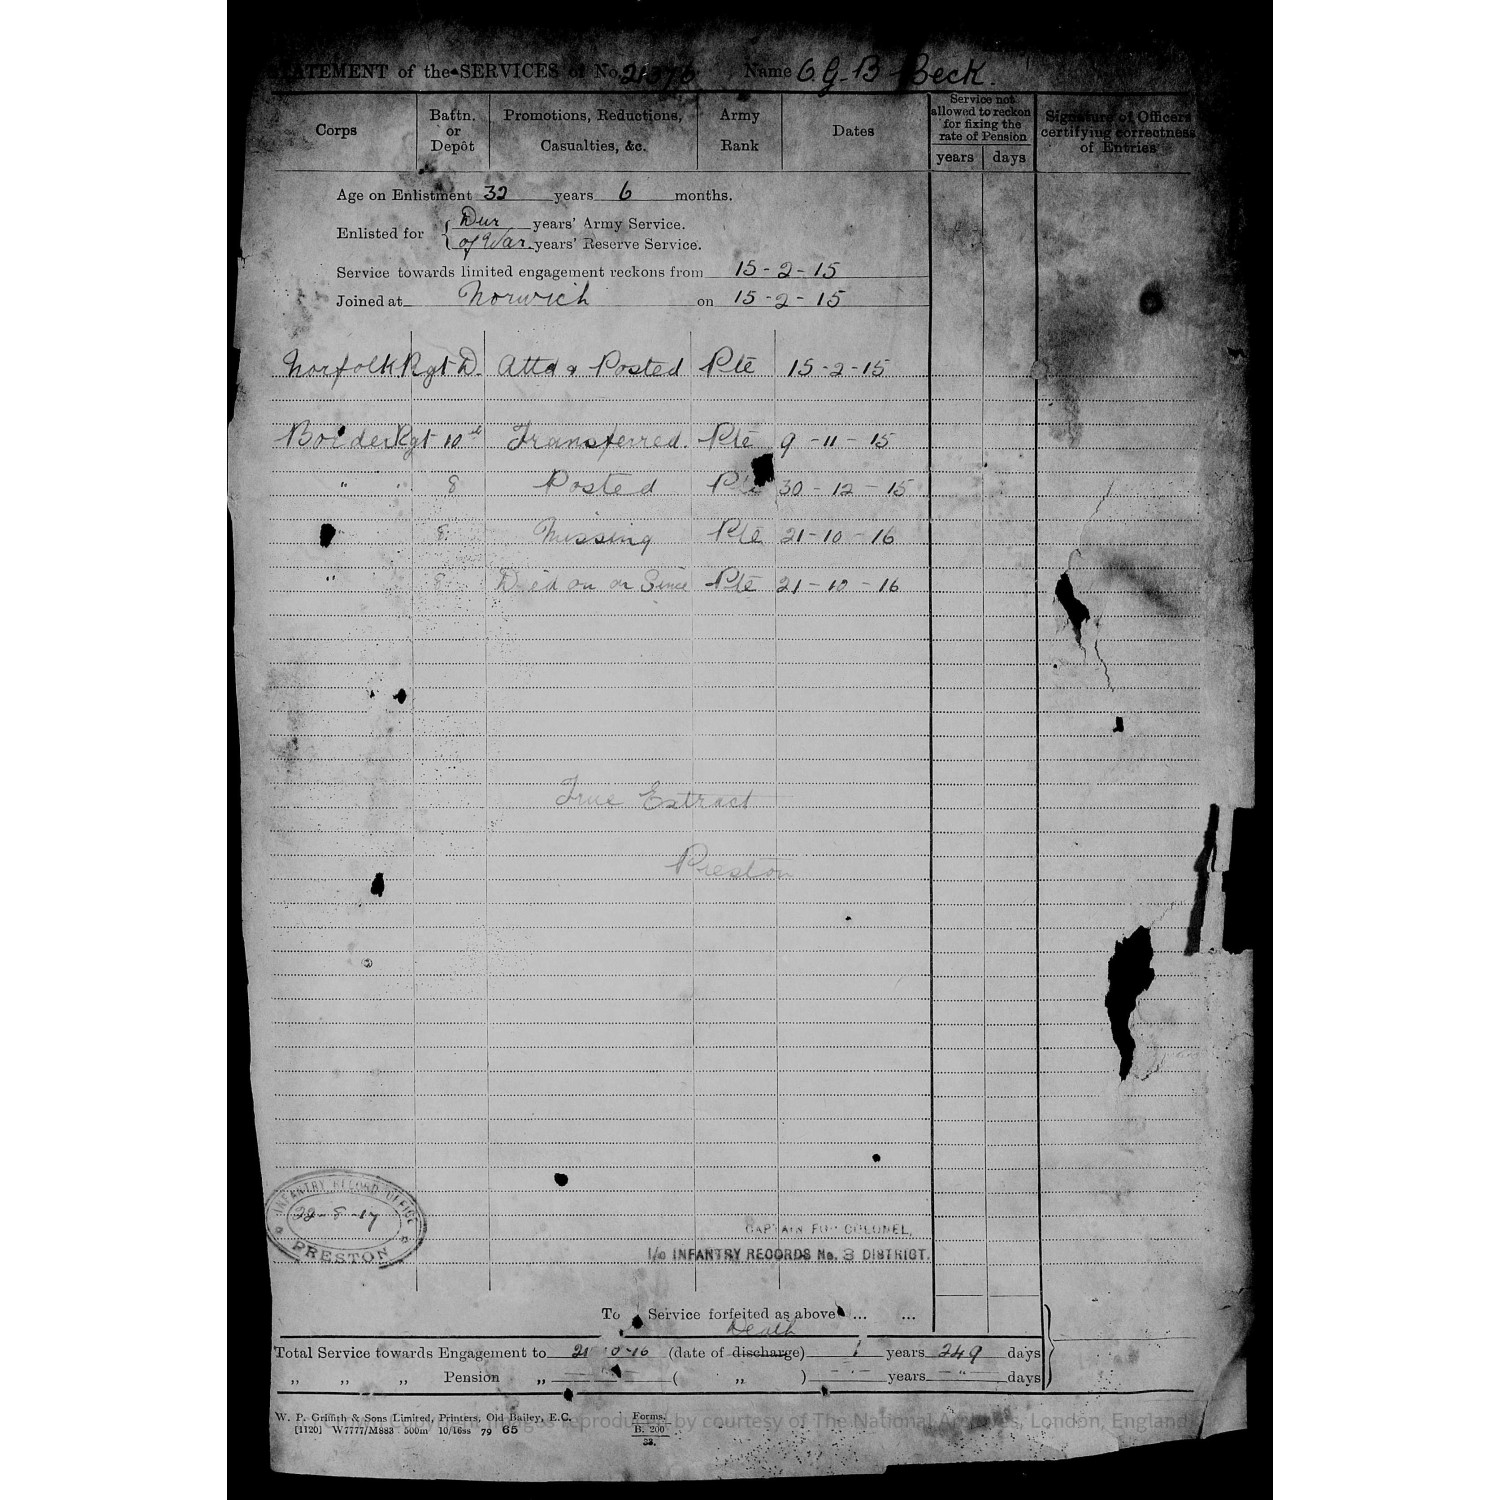 STATEMENT of the SERVICES of No. 21376 Name C G. B Beck.
Corps
Battn. or Depôt
Promotions, Reductions, Casualties, &c.
Army Rank
Dates
Service not allowed to reckon for fixing the rate of Pension
years days
Signature of Officers certifying correctness of Entries
Age on Enlistment 32 years 6 months.
Enlisted for { Dur years' Army Service.
of War. years' Reserve Service.
Service towards limited engagement reckons from 15-2-15
Joined at Norwich on 15-2-15
Norfolk Rgt D. Attd & Posted Pte 15-2-15
Border Rgt 10th Transferred. Pte 9-11-15
" " 8 Posted Pte 30-12-15
8 Missing Pte 21-10-16
" 8 Died on or Since Pte 21-10-16
True Extract
Preston
INFANTRY RECORD OFFICE
22-8-17
PRESTON
CAPTAIN FOR COLONEL,
I/c INFANTRY RECORDS No. 3 DISTRICT.
To Service forfeited as above ... ...
Death
Total Service towards Engagement to 21 10-16 (date of discharge) 1 years 249 days
,, ,, ,, Pension ,, ( ,, ) years days
W. P. Griffith & Sons Limited, Printers, Old Bailey, E.C.
[1120] W7777/M883 500m 10/16ss 79 65
Forms.
B. 200
33.
reproduced by courtesy of The National Archives, London, England